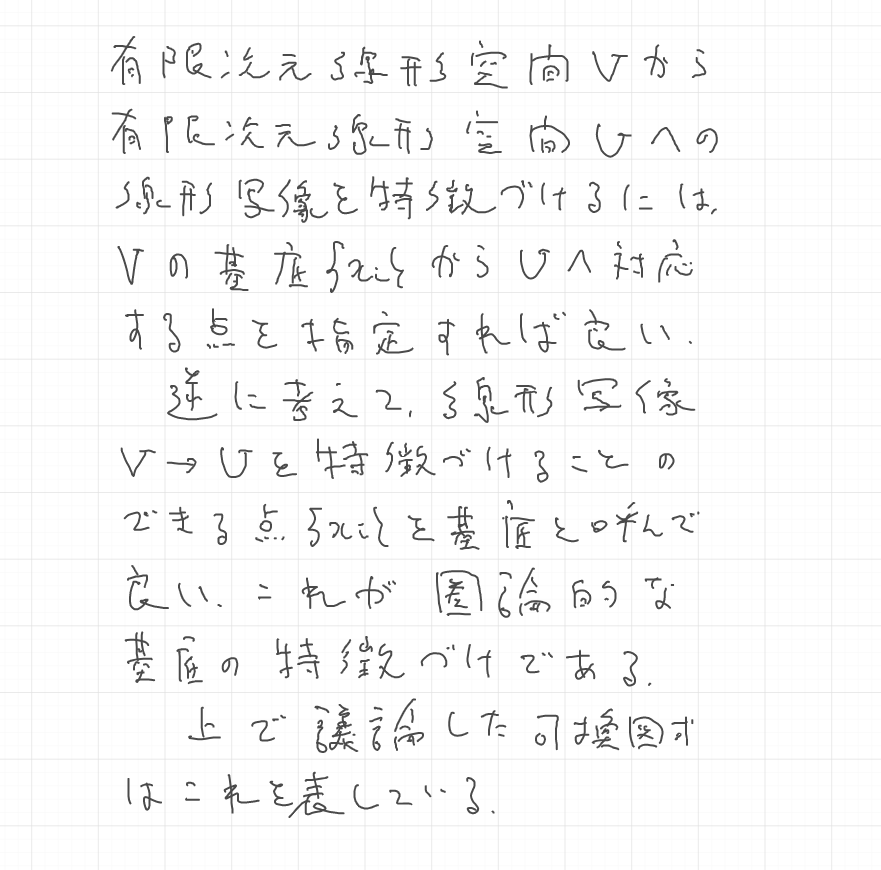 有限次元線形空間Vから
有限次元線形空間Uへの
線形写像を特徴づけるには,
Vの基底{xi}からUへ対応
する点を指定すれば良い.
逆に考えて,線形写像
V→Uを特徴づけることの
できる点{xi}を基底と呼んで
良い.これが圏論的な
基底の特徴づけである.
上で議論した可換図式
はこれを表している.